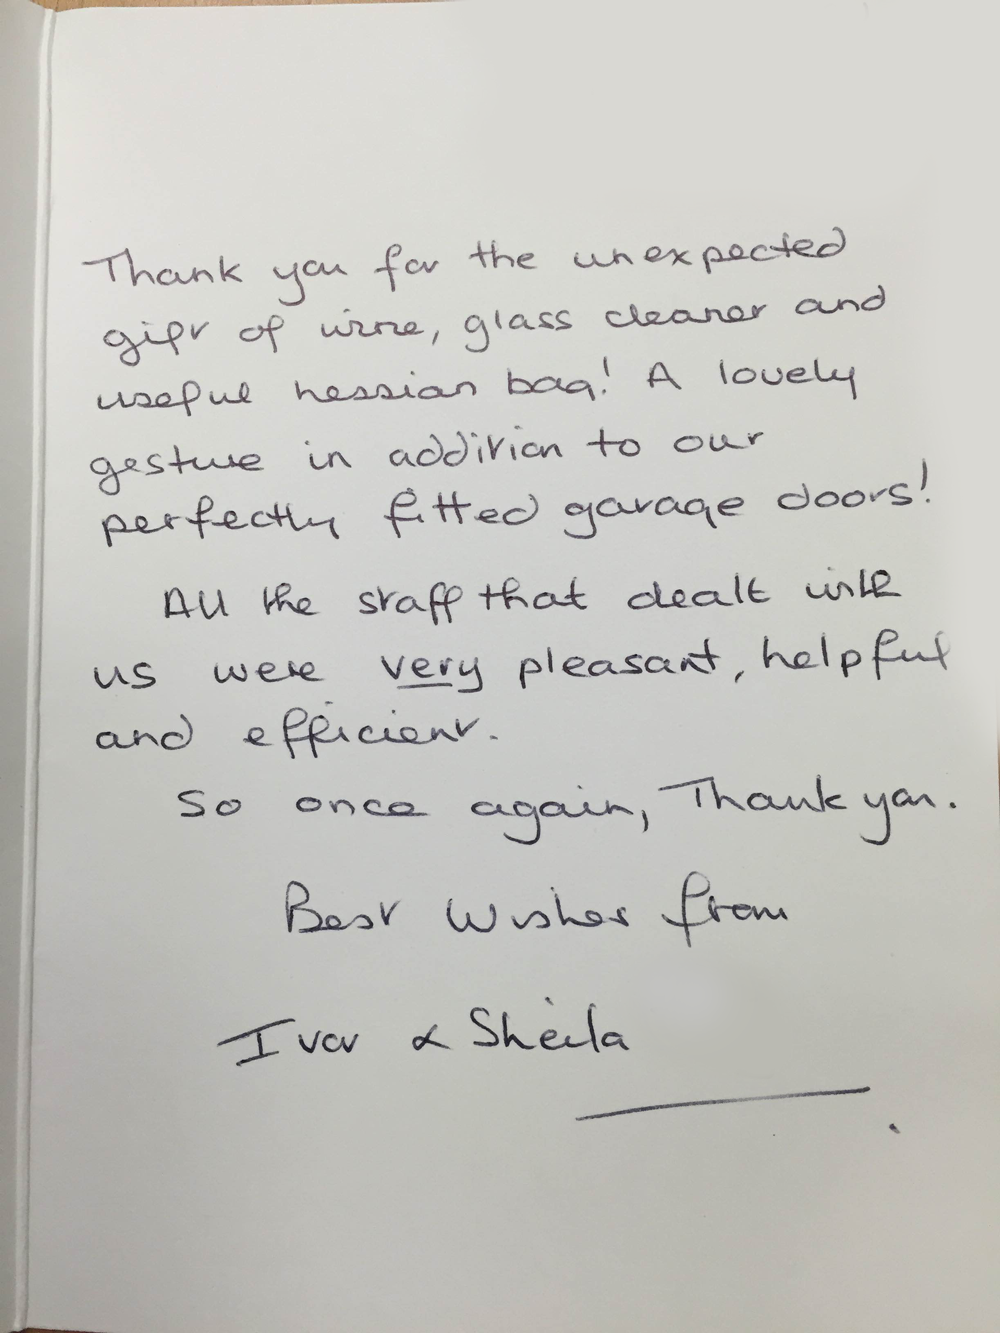 Thank you for the unexpected
gift of wine, glass cleaner and
useful hessian bag! A lovely
gesture in addition to our
perfectly fitted garage doors!
All the staff that dealt with
us were very pleasant, helpful
and efficient.
So once again, Thank you.
Best Wishes from
Ivor & Sheila